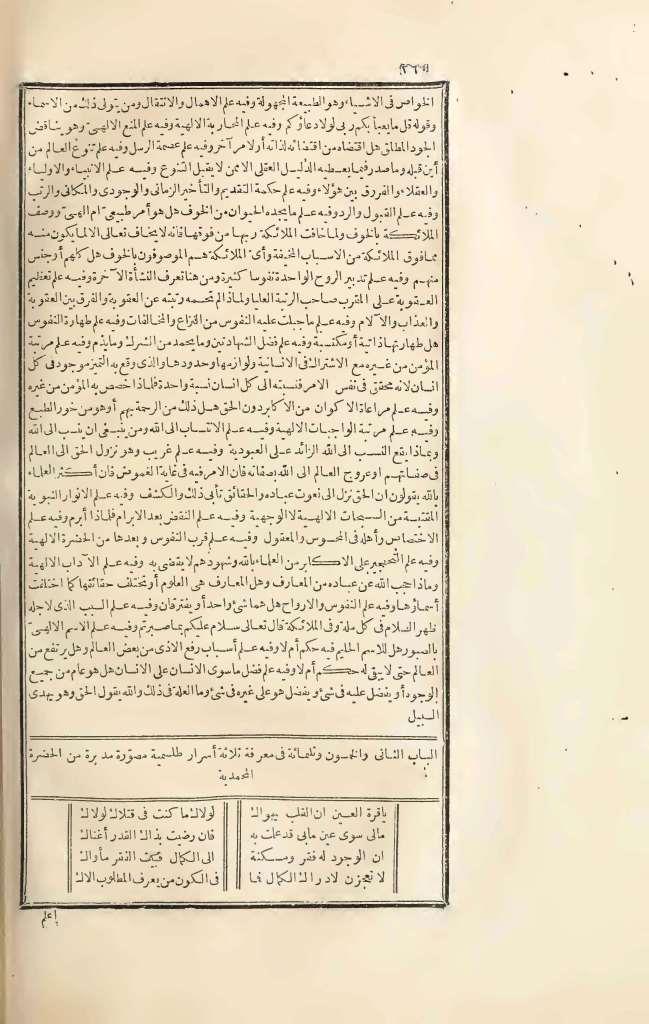 ﴿٢٣٠﴾
الخواص فى الاشياء وهو الطبيعة المجهولة وفيه علم الاهمال والانتقال ومن يتولى ذلك من الاسماء
وقوله قل ما يعبأ بكم ربى لولا دعاؤكم وفيه علم المحاربة الالهية وفيه علم المنع الالهى وهو يناقض
الجود المطلق هل اقتضاه من اقتضاه لذاته أو لامر آخر وفيه علم عصمة الرسل وفيه علم تنوع العالم من
أين قبله وما صدر فيما يعطيه الدليل العقلى الا ممن لا يقبل التنوع وفيه علم الانبياء والاولياء
والعقلاء والفرق بين هؤلاء وفيه علم حكمة التقديم والتأخير الزمانى والوجودى والمكانى والرتبى
وفيه علم القبول والرد وفيه علم ما يجده الحيوان من الخوف هل هو أمر طبيعى أم الهى ووصف
الملائكة بالخوف ولما خافت الملائكة ربها من فوقها فانه لا يخاف تعالى الا لما يكون منه
مما فوق الملائكة من الاسباب المخيفة وأى الملائكة هم الموصوفون بالخوف هل كلهم أو جنس
منهم وفيه علم تدبير الروح الواحدة نفوسا كثيرة ومن هنا تعرف النشأة الآخرة وفيه علم تعظيم
العقوبة على المقرب صاحب الرتبة العليا ولماذا لم تحمه رتبته عن العقوبة والفرق بين العقوبة
والعذاب والآلام وفيه علم ما جبلت عليه النفوس من النزاع والمخالفات وفيه علم طهارة النفوس
هل طهارتها ذاتية أو مكتسبة وفيه علم فضل الشهادتين وما يحمد من الشرك وما يذم وفيه علم مرتبة
المؤمن من غيره مع الاشتراك فى الانسانية ولوازمها وحدودها والذى وقع به التميز موجود فى كل
انسان لانه محقق فى نفس الامر فنسبته الى كل انسان نسبة واحدة فلماذا خصص به المؤمن من غيره
وفيه علم مراعاة الاكوان من الاكابر دون الحق هل ذلك من الرحمة بهم أو هو من خور الطبع
وفيه علم مرتبة الواجبات الالهية وفيه علم الانتساب الى الله ومن ينبغى ان ينسب الى الله
وبماذا يقع النسب الى الله الزائد على العبودية وفيه علم غريب وهو نزول الحق الى العالم
فى صفاتهم أو عروج العالم الى الله بصفاته فان الامر فيه فى غاية الغموض فان أكثر العلماء
بالله يقولون ان الحق نزل الى نعوت عباده والحقائق تأبى ذلك والكشف وفيه علم الانوار النبوية
المقتبسة من السبحات الالهية لا الوجهية وفيه علم النقض بعد الابرام فلماذا أبرم وفيه علم
الاختصاص وأهله فى المحسوس والمعقول وفيه علم قرب النفوس وبعدها من الحضرة الالهية
وفيه علم التحجير على الاكابر من العلماء بالله وشهودهم لا يقضى به وفيه علم الآداب الالهية
وماذا حجب الله عن عباده من المعارف وهل المعارف هى العلوم أو تختلف حقائقها كما اختلفت
أسماؤها وفيه علم النفوس والارواح هل هما شئ واحد أو يفترقان وفيه علم السبب الذى لاجله
ظهر السلام فى كل ملة وفى الملائكة قال تعالى سلام عليكم بما صبرتم وفيه علم الاسم الالهى
بالصبور هل للاسم الحليم فيه حكم أم لا وفيه علم أسباب رفع الاذى من بعض العالم وهل يرتفع من
العالم حتى لا يبقى له حكم أم لا وفيه علم فضل ما سوى الانسان على الانسان هل هو عام من جميع
الوجوه أو يفضل عليه فى شئ ويفضل هو على غيره فى شئ وما العلة فى ذلك والله يقول الحق وهو يهدى
السبيل
الباب الثانى والخمسون وثلثمائة فى معرفة ثلاثة أسرار طلسمية مصورة مدبرة من الحضرة
المحمدية
ياقرة العين ان القلب يهواك لولاك ما كنت فى قتلاك لولاك
مالى سوى عين مالى قد علمت به فان رضيت بذاك القدر أغناك
ان الوجود له فقر ومسكنة الى الكمال فبيت الفقر مأواك
لا تعجزن لادراك الكمال فما فى الكون من يعرف المطلوب الاك
إعلم